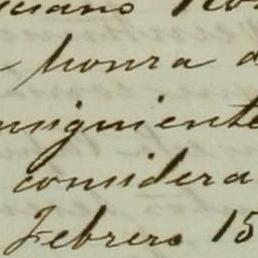 honra d
nsiguiente
considera
Febrero 15